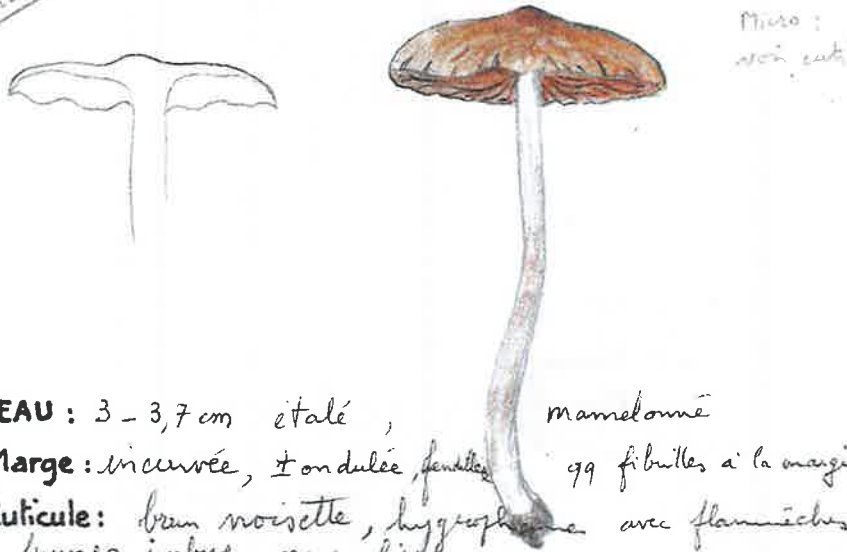 Micro :
voir
EAU : 3 – 3,7 cm étalé , mamelonné
Marge : incurvée, ± ondulée, fendillée qq fibrilles à la marge
cuticule : brun noisette, hygrophane avec flammèches